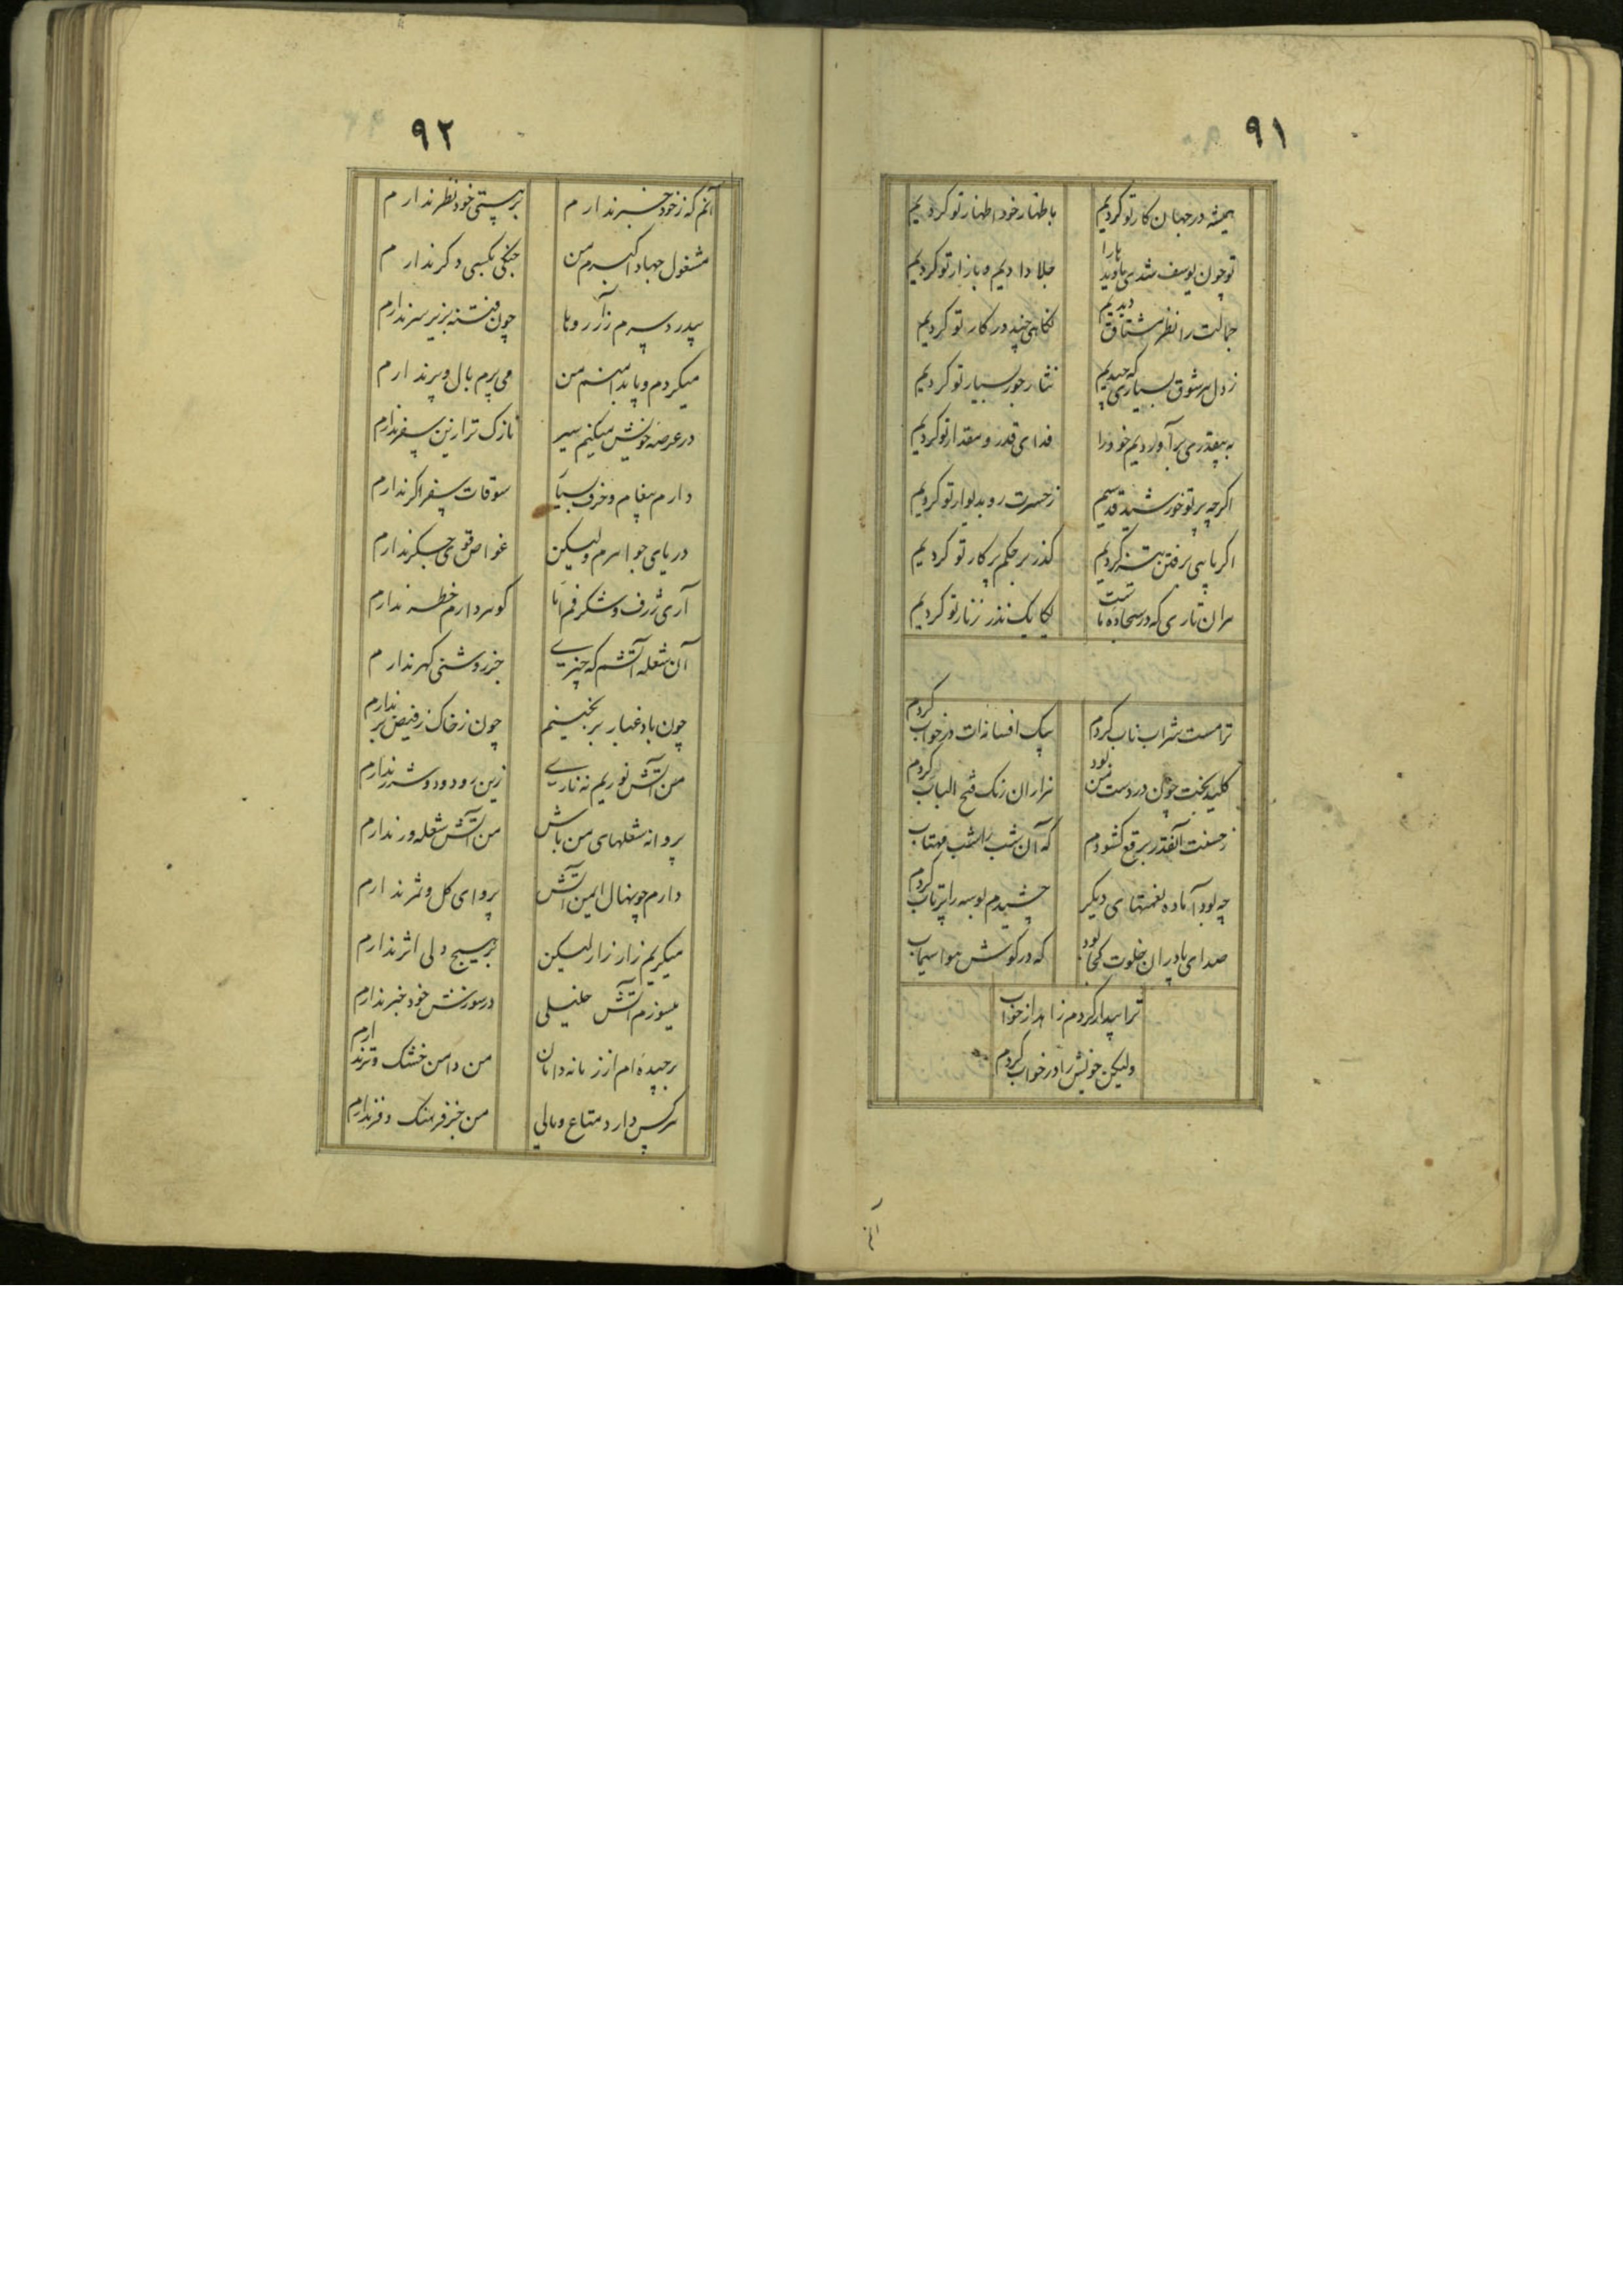 ۹۱
همیشه در جهان کار تو کردیم
باظهار خود اظهار تو کردیم
تو چون یوسف شدی بارا
جلا دادیم و بازار تو کردیم
جمالت را نظر مشتاق دیدیم
نگاهی چند در کار تو کردیم
ز دل هر شوق بسیاری که چیدیم
نثار جور بسیار تو کردیم
به بیقدری برآوردیم خود را
فدای قدر و مقدار تو کردیم
اگرچه پرتو خورشید قدیم
ز حسرت رو بدیوار تو کردیم
اگر پایی برفتن تیز کردیم
گذر بر حکم پرکار تو کردیم
هران تاری که در سجاده ما
یکایک نذر زنار تو کردیم
ترا مست شراب ناب کردم
بیک افسانه‌ات در خواب کردم
کلید بخت چون در دست من بود
هزاران رنگ فتح الباب کردم
ز حسنت آنقدر برقع کشودم
که آن شب را شب مهتاب
چه بود آماده نعمتهای دیگر
چشیدم بوسه را پرتاب کردم
صدای پادران خلوت کجا بود
که در گوشش هوا سیماب
ترا بیدار کردم زاهد از خواب
ولیکن خویش را در خواب کردم
آنم
۹۲
آنم که ز خود خبر ندارم
بر هستی خود نظر ندارم
مشغول جهاد اکبرم من
جنگی بکسی دگر ندارم
پدرد سرم ز آرزوها
چون فتنه بزیر سر ندارم
میگردم و پا بدامنم من
می‌پرم بال و پر ندارم
در عرصه خویش میکنم سیر
نازک‌تر ازین سفر ندارم
دارم پیغام و حرف بسیار
سوقات سفر اگر ندارم
دریای جواهرم ولیکن
غواص قوی جگر ندارم
آری ژرف و شگرفم اما
گوهر دارم خطر ندارم
آن شعله آتشم که چیزی
جز روشنی گهر ندارم
چون باد غبار بر نخیزم
چون ز خاک ز فیض بر ندارم
من آتش نوریم نه ناری
زین رو دود و شرر ندارم
پروانه شعلهای من باش
من آتش شعله‌ور ندارم
دارم چو نهال ایمن آتش
پروای گل و ثمر ندارم
میگریم زار زار لیکن
بر هیچ دلی اثر ندارم
میسوزم آتش خلیلی
در سوزش خود خبر ندارم
برچیده‌ام از زمانه دامان
من دامن خشک و تر ندارم
هر کس دارد متاع و مالی
من جز فرهنگ و فر ندارم